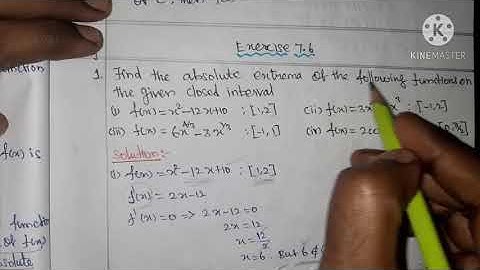 Exercise 7.6
KINEMASTER
1. Find the absolute extrema of the following functions on
the given closed interval
(i) f(x) = x²-12x+10 ; [1,2] (ii) f(x) = 3x [-1,2]
(iii) f(x) = 6x^4/3 - 3x^1/3 ; [-1,1] (iv) f(x) = 2co
Solution:-
(i) f(x) = x²-12x+10 ; [1,2]
f'(x) = 2x-12
f'(x) = 0 => 2x-12=0
2x=12
x=12/2
x=6. But 6
f(x) is
function
of f(x)